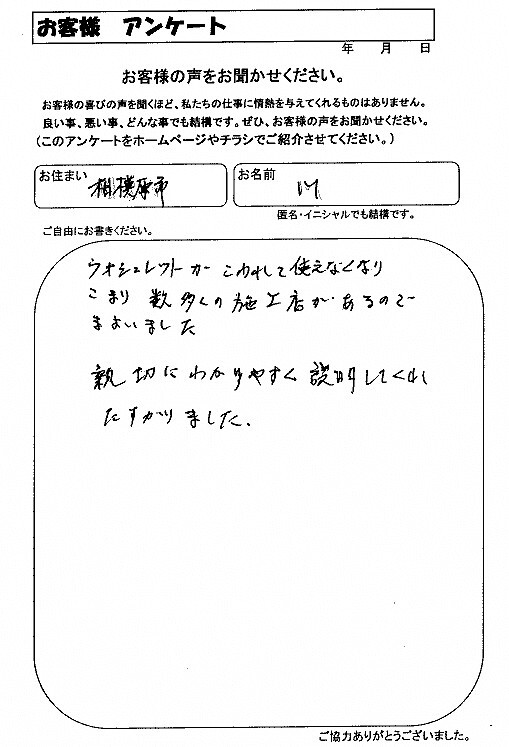 お客様 アンケート
年 月 日
お客様の声をお聞かせください。
お客様の喜びの声を聞くほど、私たちの仕事に情熱を与えてくれるものはありません。
良い事、悪い事、どんな事でも結構です。ぜひ、お客様の声をお聞かせください。
(このアンケートをホームページやチラシでご紹介させてください。)
お住まい 相模原市
お名前
匿名・イニシャルでも結構です。
ご自由にお書きください。
ウオシュレットが こわれして使えなくなり
こまり 数多くの施工店があるので
まよいました
親切にわかりやすく説明してくれ
たすかりました.
ご協力ありがとうございました。